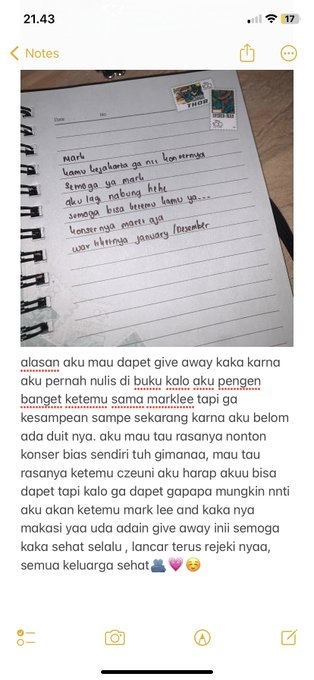 21.43
17
Notes
THOR
SPIDER-MAN
Date No
Mark
kamu kejakarta ga nii konsernya
semoga ya mark
aku lagi nabung hehe
semoga bisa ketemu kamu ya...
konsernya maret aja
war tiketnya january / Desember
alasan aku mau dapet give away kaka karna
aku pernah nulis di buku kalo aku pengen
banget ketemu sama marklee tapi ga
kesampean sampe sekarang karna aku belom
ada duit nya. aku mau tau rasanya nonton
konser bias sendiri tuh gimanaa, mau tau
rasanya ketemu czeuni aku harap akuu bisa
dapet tapi kalo ga dapet gapapa mungkin nnti
aku akan ketemu mark lee and kaka nya
makasi yaa uda adain give away inii semoga
kaka sehat selalu , lancar terus rejeki nyaa,
semua keluarga sehat🫂💗☺️